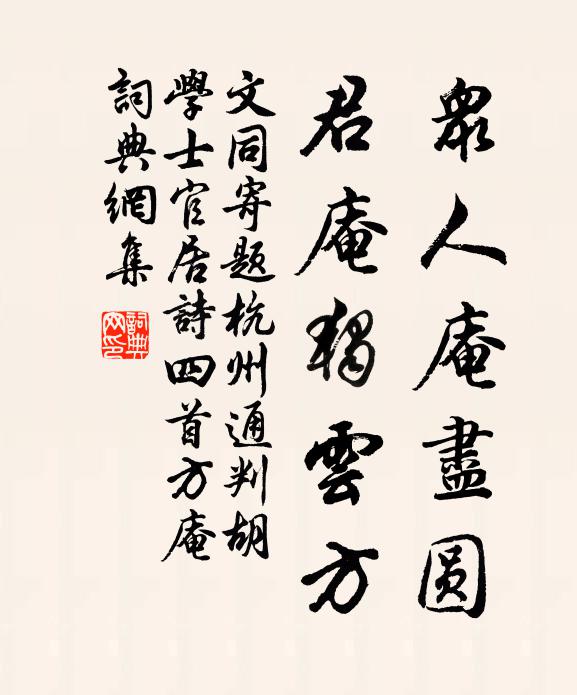 眾人庵盡圓
君庵獨雲方
文同寄題杭州通判胡
學士官居詩四首方庵
詞典網集
詞典網印